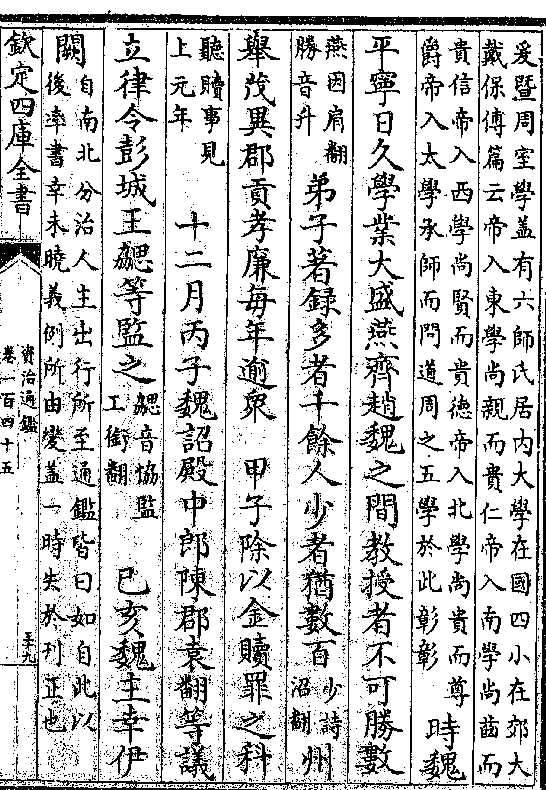 爰暨周室學蓋有六師氏居内大學在國四小在郊大
戴保傅篇云帝入東學尚親而貴仁帝入南學尚齒而
貴信帝入西學尚賢而貴德帝入北學尚貴而尊
爵帝入太學承師而問道周之五學於此彰彰
時魏
平寧日久學業大盛燕齊趙魏之間教授者不可勝數
燕因肩翻
勝音升
弟子著録多者千餘人少者猶數百
少詩
沼翻
州
舉茂異郡貢孝廉每年逾衆 甲子除以金贖罪之科
聽贖事見
上元年
十二月丙子魏詔殿中郎陳郡袁翻等議
立律令彭城王勰等監之
勰音協監
工銜翻
己亥魏主幸伊
闕
自南北分治人主出行所至通鑑皆曰如自此以
後率書幸未曉義例所由變蓋一時失於刋正也
欽定四庫全書
資治通鑑
卷一百四十五
三十九